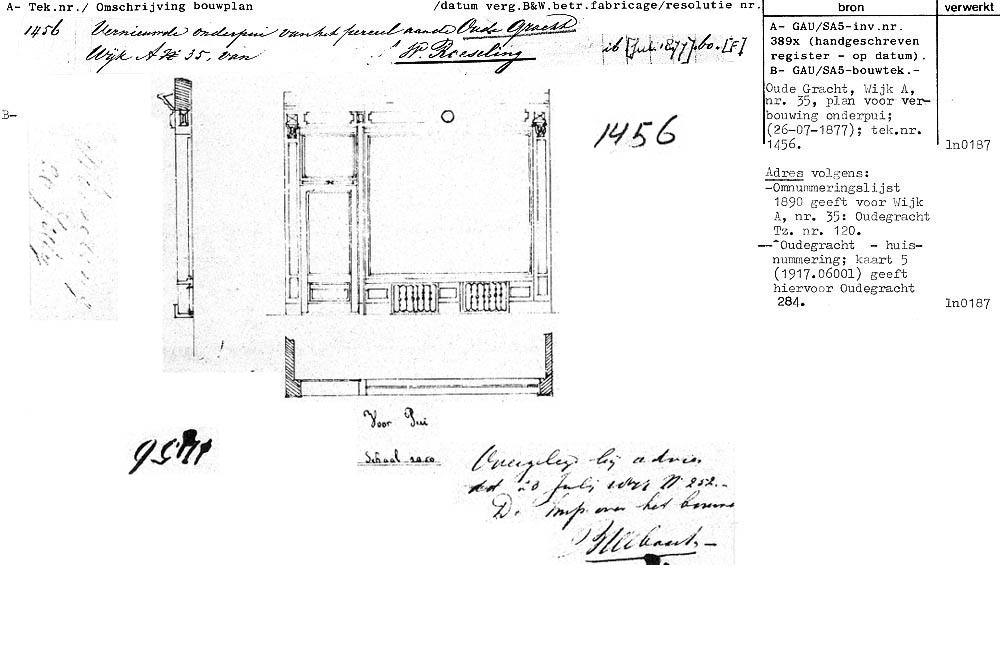 A- Tek.nr./ Omschrijving bouwplan /datum verg.B&W.betr.fabricage/resolutie nr.
1456 Vernieuwde onderpui van het perceel aan de Oude Gracht
Wijk A No 35, van W. Roeseling 26 [Juli 1877]
B-
1456
Voor Pui
Schaal
1456
Overgelegd bij advies
dd 23 Julij 1877 No 252.-
De Insp over het bouw
bron
verwerkt
A- GAU/SA5-inv.nr.
389x (handgeschreven
register - op datum).
B- GAU/SA5-bouwtek.-
Oude Gracht, Wijk A,
nr. 35, plan voor ver-
bouwing onderpui;
(26-07-1877); tek.nr.
1456. ln0187
Adres volgens:
-Omnummeringslijst
1890 geeft voor Wijk
A, nr. 35: Oudegracht
Tz. nr. 120.
-Oudegracht - huis-
nummering; kaart 5
(1917.06001) geeft
hiervoor Oudegracht
284. ln0187